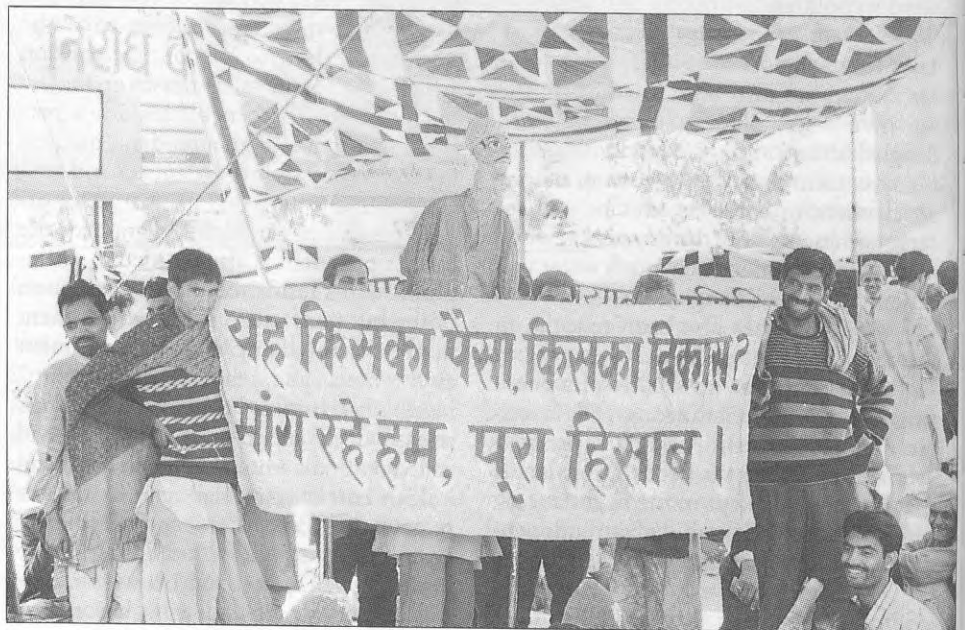 यह किसका पैसा, किसका विकास?
मांग रहे हम, पूरा हिसाब।